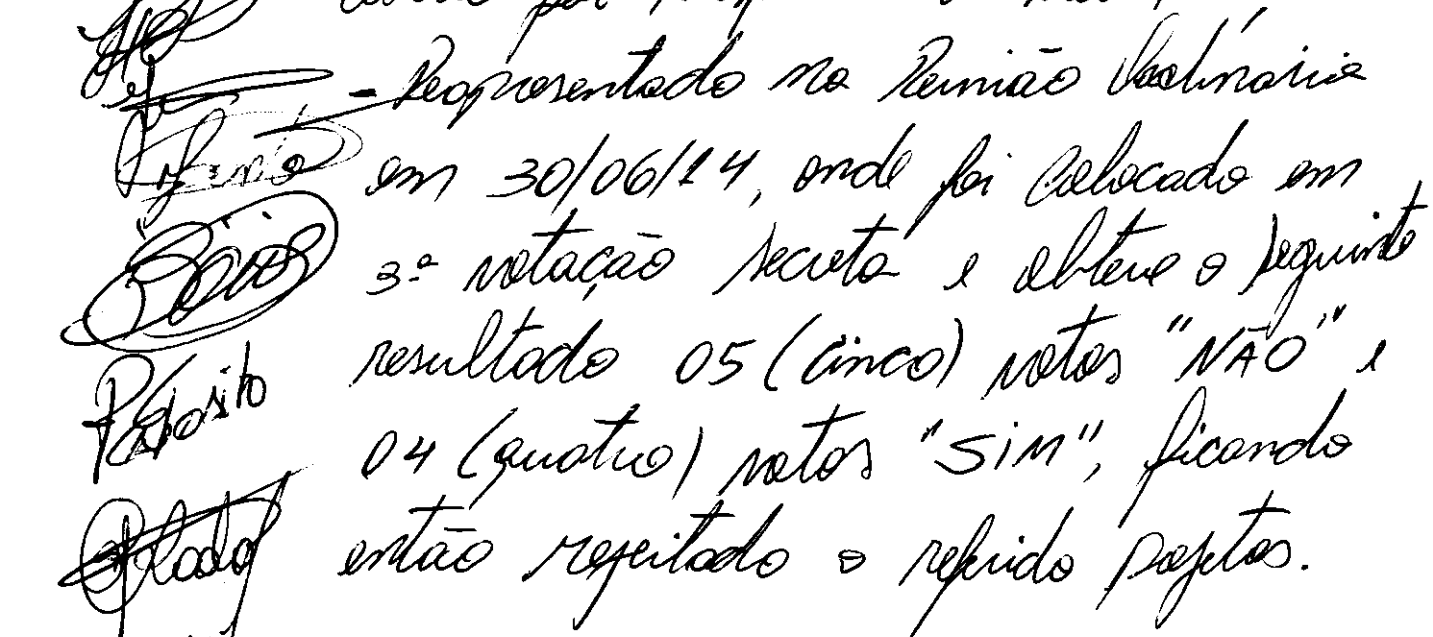 - Reapresentado na Reunião Ordinária
em 30/06/14, onde foi colocado em
3ª votação secreta e obteve o seguinte
resultado 05 (cinco) votos "NÃO" e
04 (quatro) votos "SIM", ficando
então rejeitado o referido projetos.